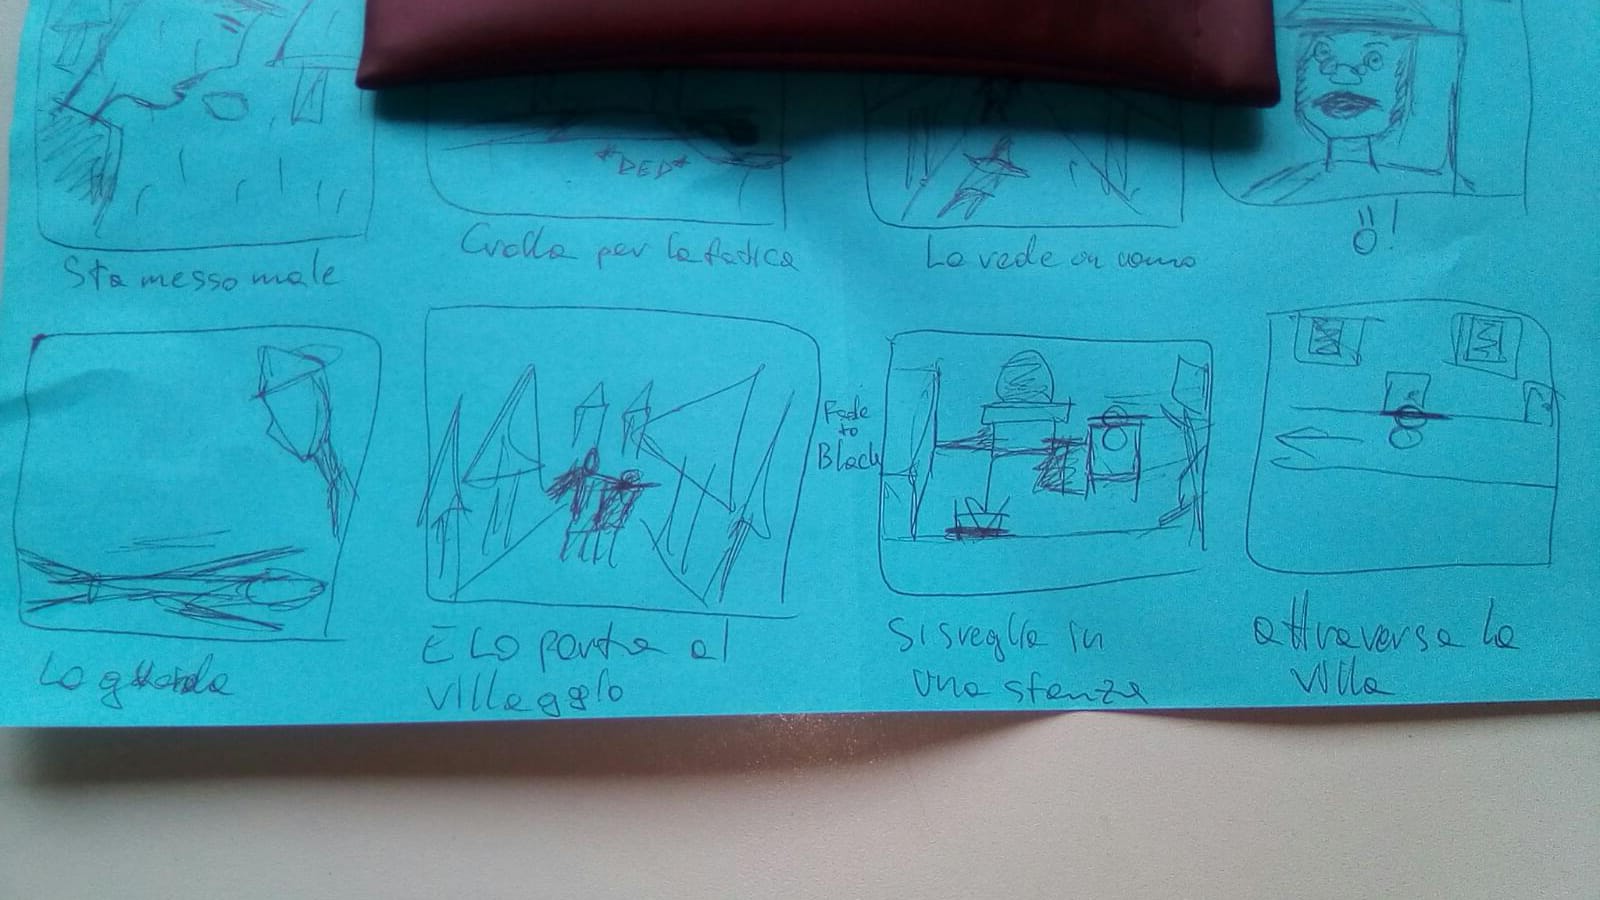 *DED*
Sta messo male
Crolla per la fatica
Lo vede un uomo
Ö!
Fade
to
Black
Lo guarda
E Lo porta al
villaggio
Si sveglia in
una stanza
attraversa la
villa